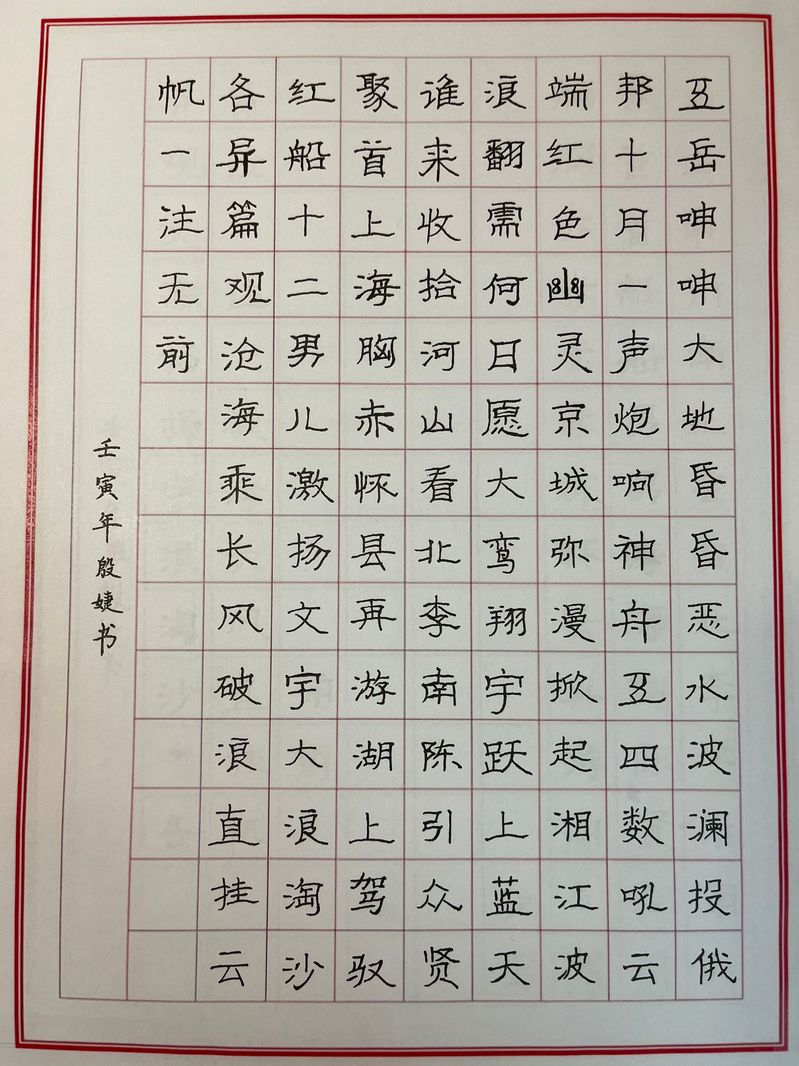 五岳呻呻大地昏昏恶水波澜投俄
邦十月一声炮响神舟五四数吼云
端红色幽灵京城弥漫掀起湘江波
浪翻需何日愿大鸾翔宇跃上蓝天
谁来收拾河山看北李南陈引众贤
聚首上海胸赤怀县再游湖上驾驭
红船十二男儿激扬文宇大浪淘沙
各异篇观沧海乘长风破浪直挂云
帆一注无前
壬寅年殷婕书